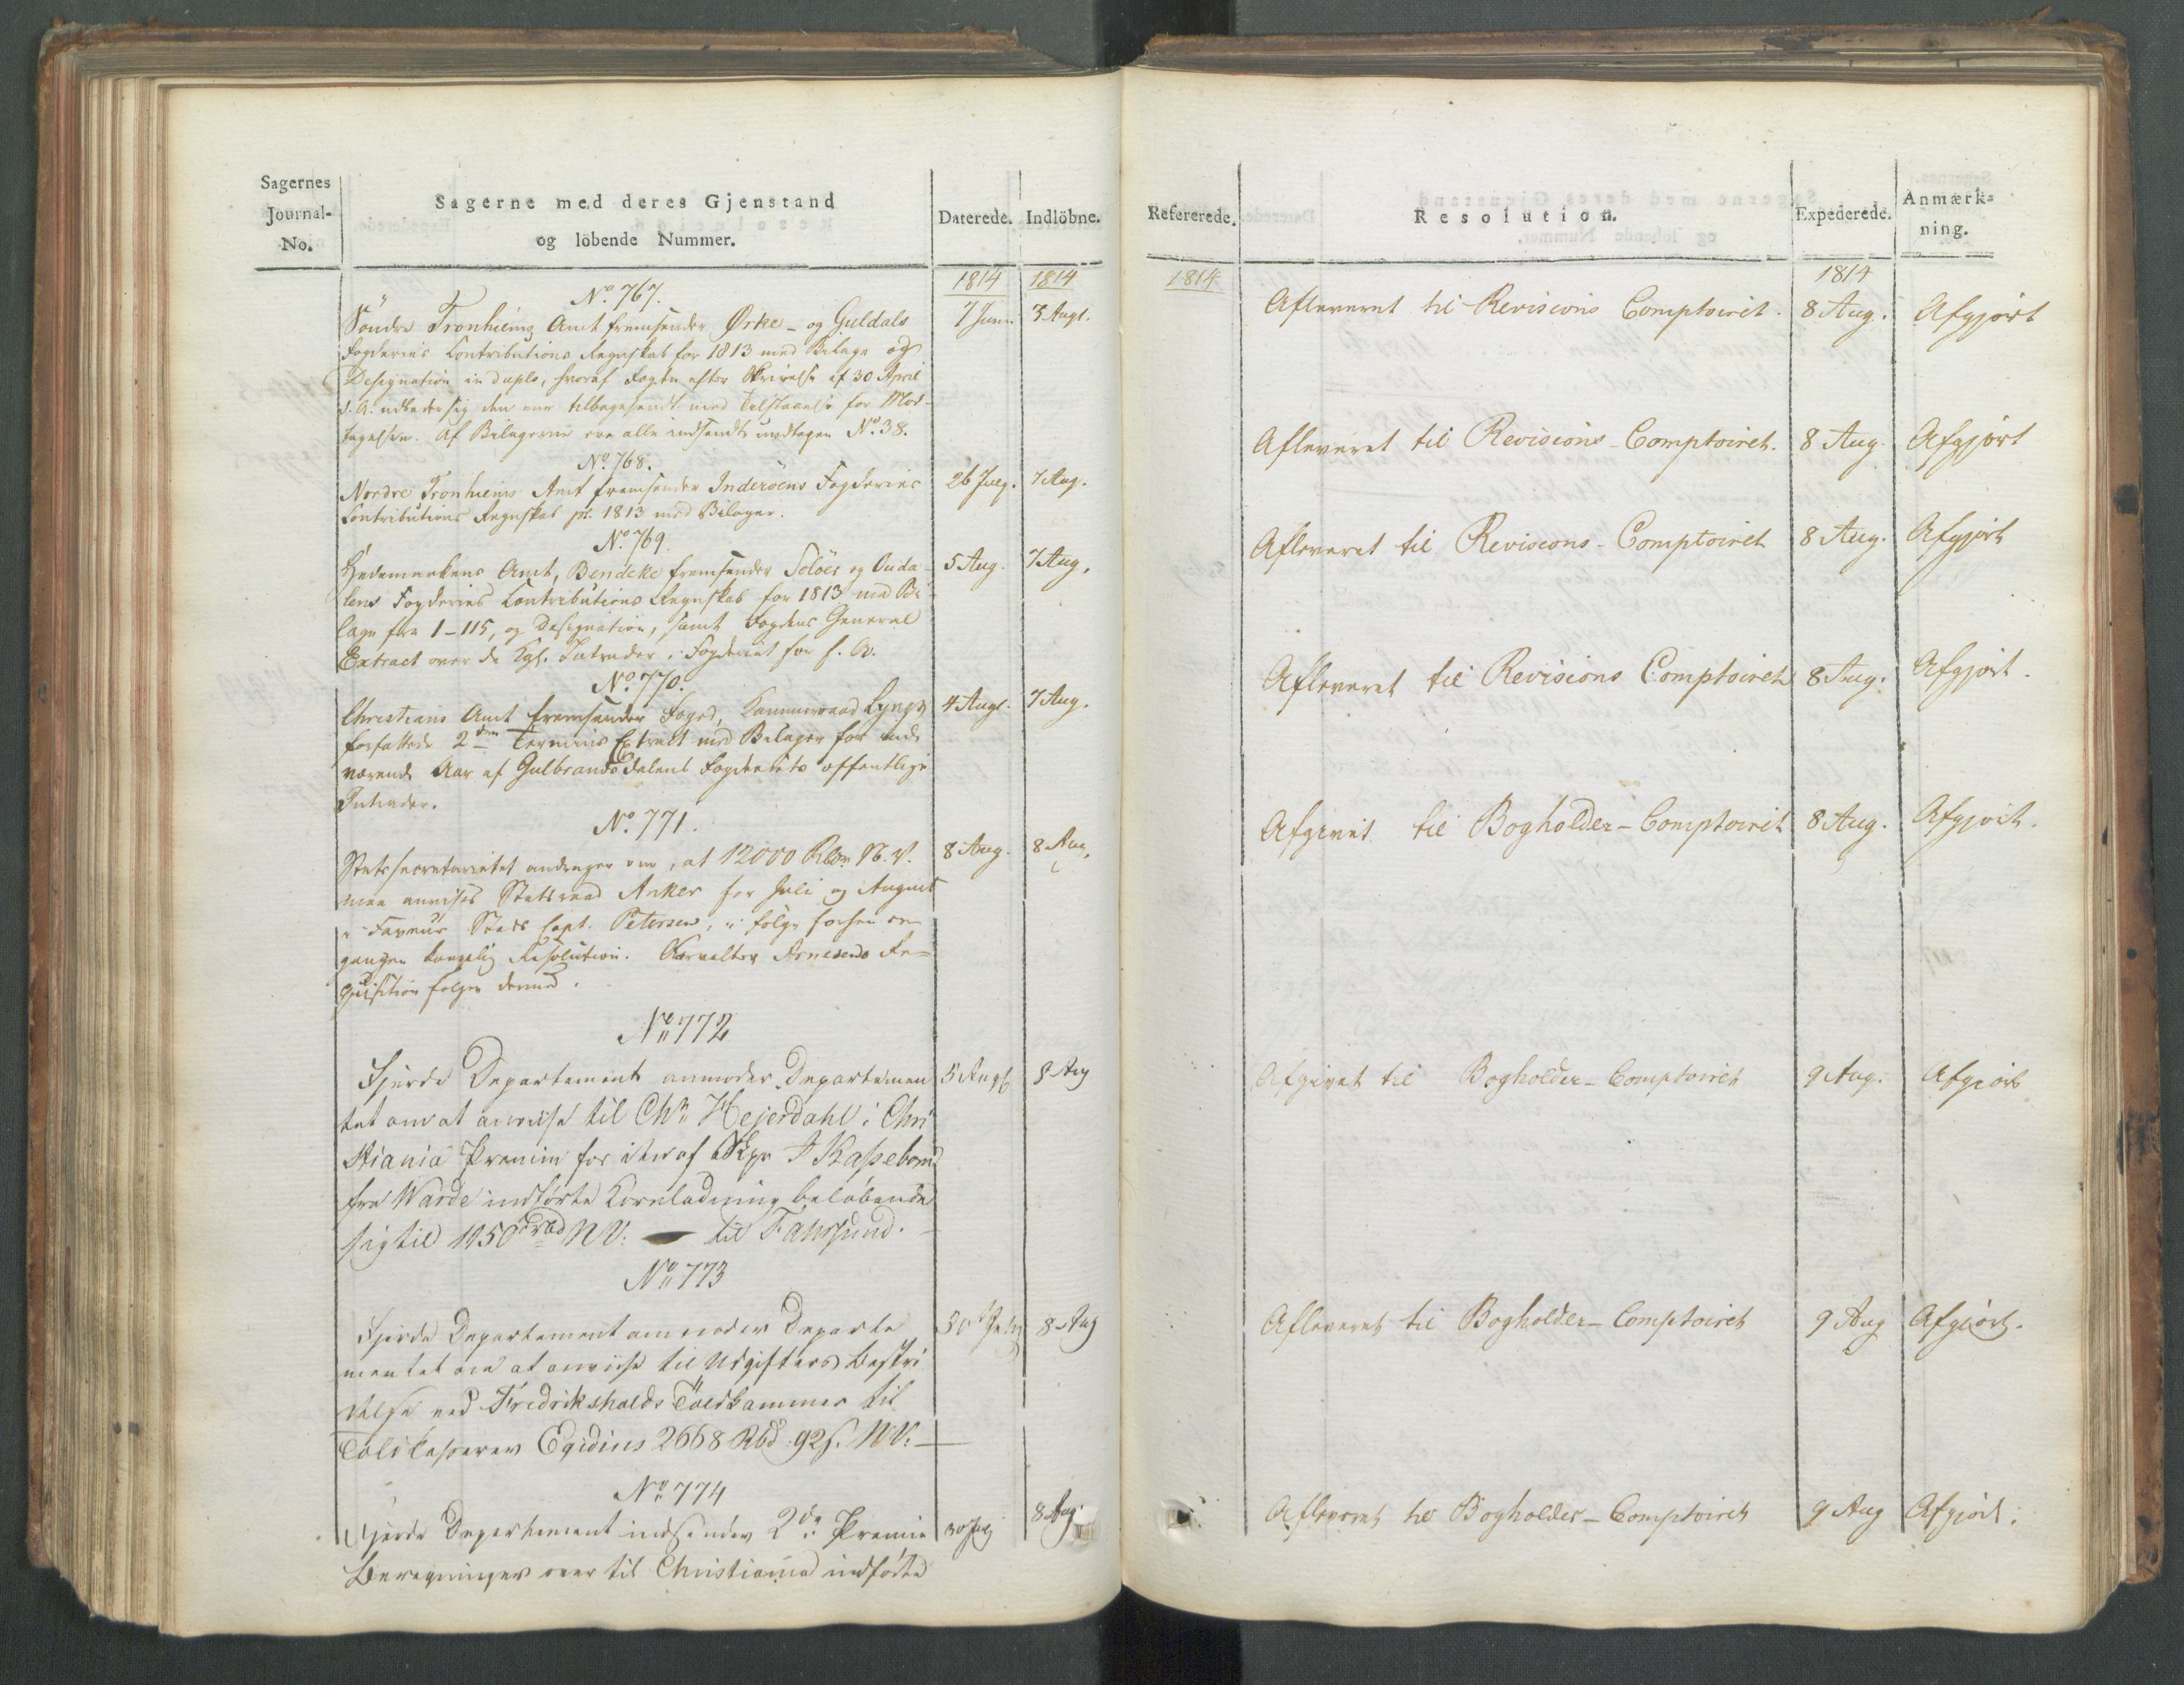 Sagernes
Journal-
No.
Sagerne med deres Gjenstand
og löbende Nummer.
Daterede.
Indlöbne.
1814
1814
No. 767.
Söndre Tronhiems Amt fremsender Örke- og Guldals
7 Juni. 3 Augt.
Fogderies Contributions Regnskab for 1813 med Bilage og
Designation in duplo, hvoraf Fogden efter Skrivelse af 30 April
d. A. udbeder sig den ene tilbagesendt med Tilstaaelse for Mod-
tagelsen. Af Bilagerne ere alle indsendte undtagen No. 38.
No. 768.
Nordre Tronhiems Amt fremsender Inderöens Fogderies
26 July. 7 Aug.
Contributions Regnskab pr. 1813 med Bilager.
No. 769.
Hedemarkens Amt, Bendeke fremsender Solöer og Ouda-
5 Aug. 7 Aug.
lens Fogderies Contributions Regnskab for 1813 med Bi-
lage fra 1-115, og Designation, samt Fogdens General
Extract over de Kgl. Intrader i Fogderiet for f. A.
No. 770.
Christians Amt fremsender Foged, Kammerraad Lyngs
4 Augt. 7 Aug.
forfattede 2den Termins Extract med Bilager for inde
værende Aar af Gulbrandsdalens Fogderiets offentlige
Intrader.
No. 771.
Statssecretariatet andrager om, at 12000 Rbdr. N. V.
8 Aug. 8 Aug.
maa anvises Statsraad Anker for Juli og August
i Faveur Capt. Petersen, i fölge forhen er-
gangen kongelig Resolution. Forvalter Arnesens Re-
quisition fölger dermed.
No. 772
Fjerde Departement anmoder Departemen
5 Augt 8 Aug
tet om at anviise til Chr. Hejerdahl i Chri
stiania Premie for den af Skpr J Kassebom
fra Warde indförte Kornladning belöbende
sig til 1150 rbd NV: — til Fahrsund.
No. 773
Fjerde Departement anmoder Departe
30 July 8 Aug
mentet om at anviise til Udgifters Bestri
delse ved Fredrikshalds Toldkammer til
Toldkasserer Egidius 2668 Rbd: 92 s. NV:
No. 774
Fjerde Departement indsender 2de Premie
30 July 8 Aug.
Beregninger over til Christiania indförte
Refererede.
Resolution.
Expederede.
Anmærk-
ning.
1814
1814
Afleveret til Revisions Comptoiret. 8 Aug. Afgjört
Afleveret til Revisions-Comptoiret. 8 Aug. Afgjört
Afleveret til Revisions-Comptoiret 8 Aug. Afgjört
Afleveret til Revisions Comptoiret 8 Aug. Afgjört.
Afgivet til Bogholder-Comptoiret 8 Aug. Afgjört.
Afgivet til Bogholder-Comptoiret 9 Aug. Afgiört
Afleveret til Bogholder-Comptoiret 9 Aug Afgiört.
Afleveret til Bogholder-Comptoiret 9 Aug Afgjört.